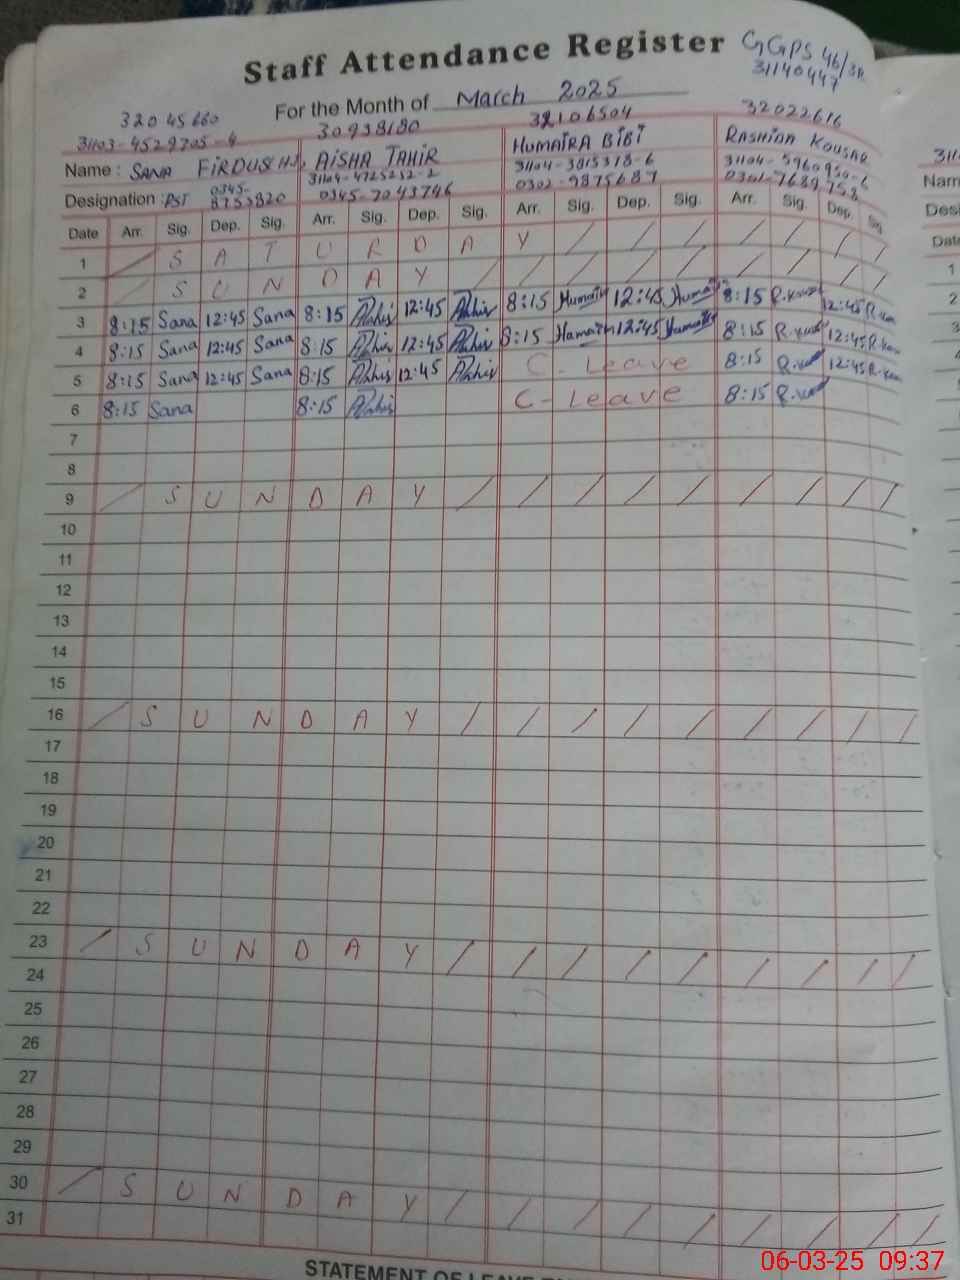 Staff Attendance Register
GGPS 46/3R
31140447
For the Month of March 2025
32045660 30938180 32106504 32022616
31103-4529205-4 HUMAIRA BIBI RASHIDA KOUSAR
Name : SANA FIRDUS AISHA TAHIR 31104-3815318-6 31104-5960950-6
31104-4725252-2 0302-9875687 0301-7689758
Designation : PST 0345-8753820 0345-7043746
Date Arr. Sig. Dep. Sig. Arr. Sig. Dep. Sig. Arr. Sig. Dep. Sig. Arr. Sig. Dep. Sig
1 / S A T U R D A Y / / / / / / /
2 / S U N D A Y / / / / / / / / /
3 8:15 Sana 12:45 Sana 8:15 12:45 8:15 Humaira 12:45 Humaira 8:15 R.Kousar 12:45 R.Kou
4 8:15 Sana 12:45 Sana 8:15 12:45 8:15 Humaira 12:45 Humaira 8:15 R.Kousar 12:45 R.Kou
5 8:15 Sana 12:45 Sana 8:15 12:45 C- Leave 8:15 12:45 R.Kou
6 8:15 Sana 8:15 C- Leave 8:15
7
8
9 / S U N D A Y / / / / / / / / /
10
11
12
13
14
15
16 / S U N D A Y / / / / / / / / /
17
18
19
20
21
22
23 / S U N D A Y / / / / / / / / /
24
25
26
27
28
29
30 / S U N D A Y / / / / / / / / /
31
06-03-25 09:37
311
Nam
Desi
Date
1
2
3